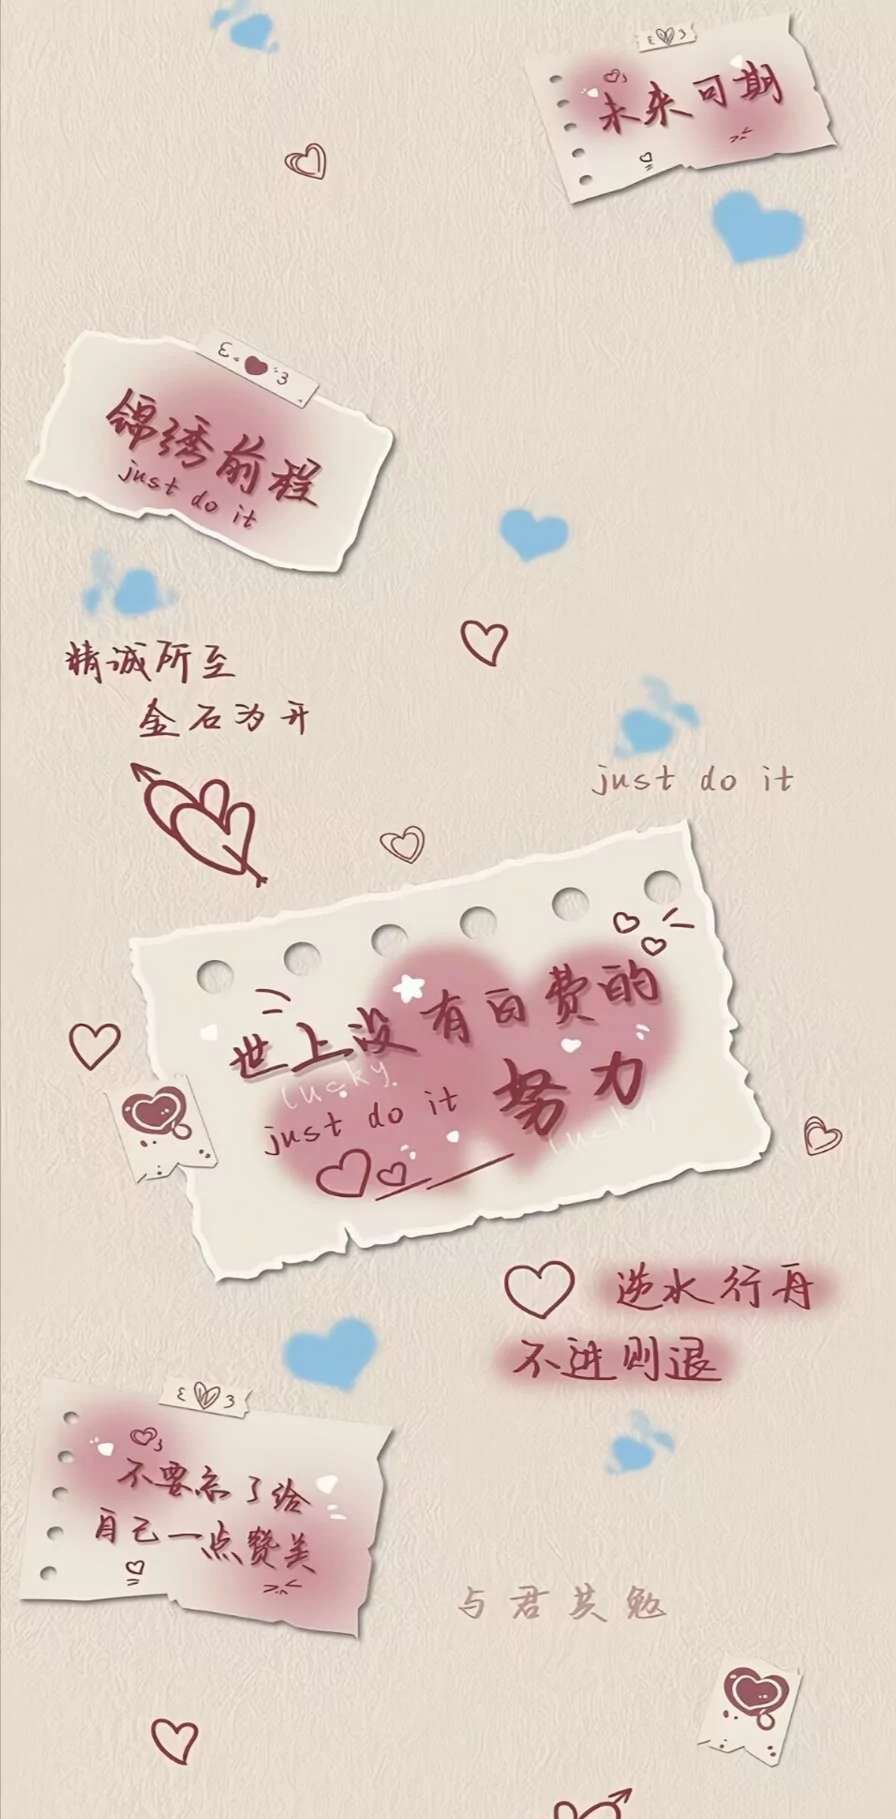 未来可期
锦绣前程
just do it
精诚所至
金石为开
just do it
世上没有白费的
努力
lucky
just do it
lucky
逆水行舟
不进则退
不要忘了给
自己一点赞美
与君共勉